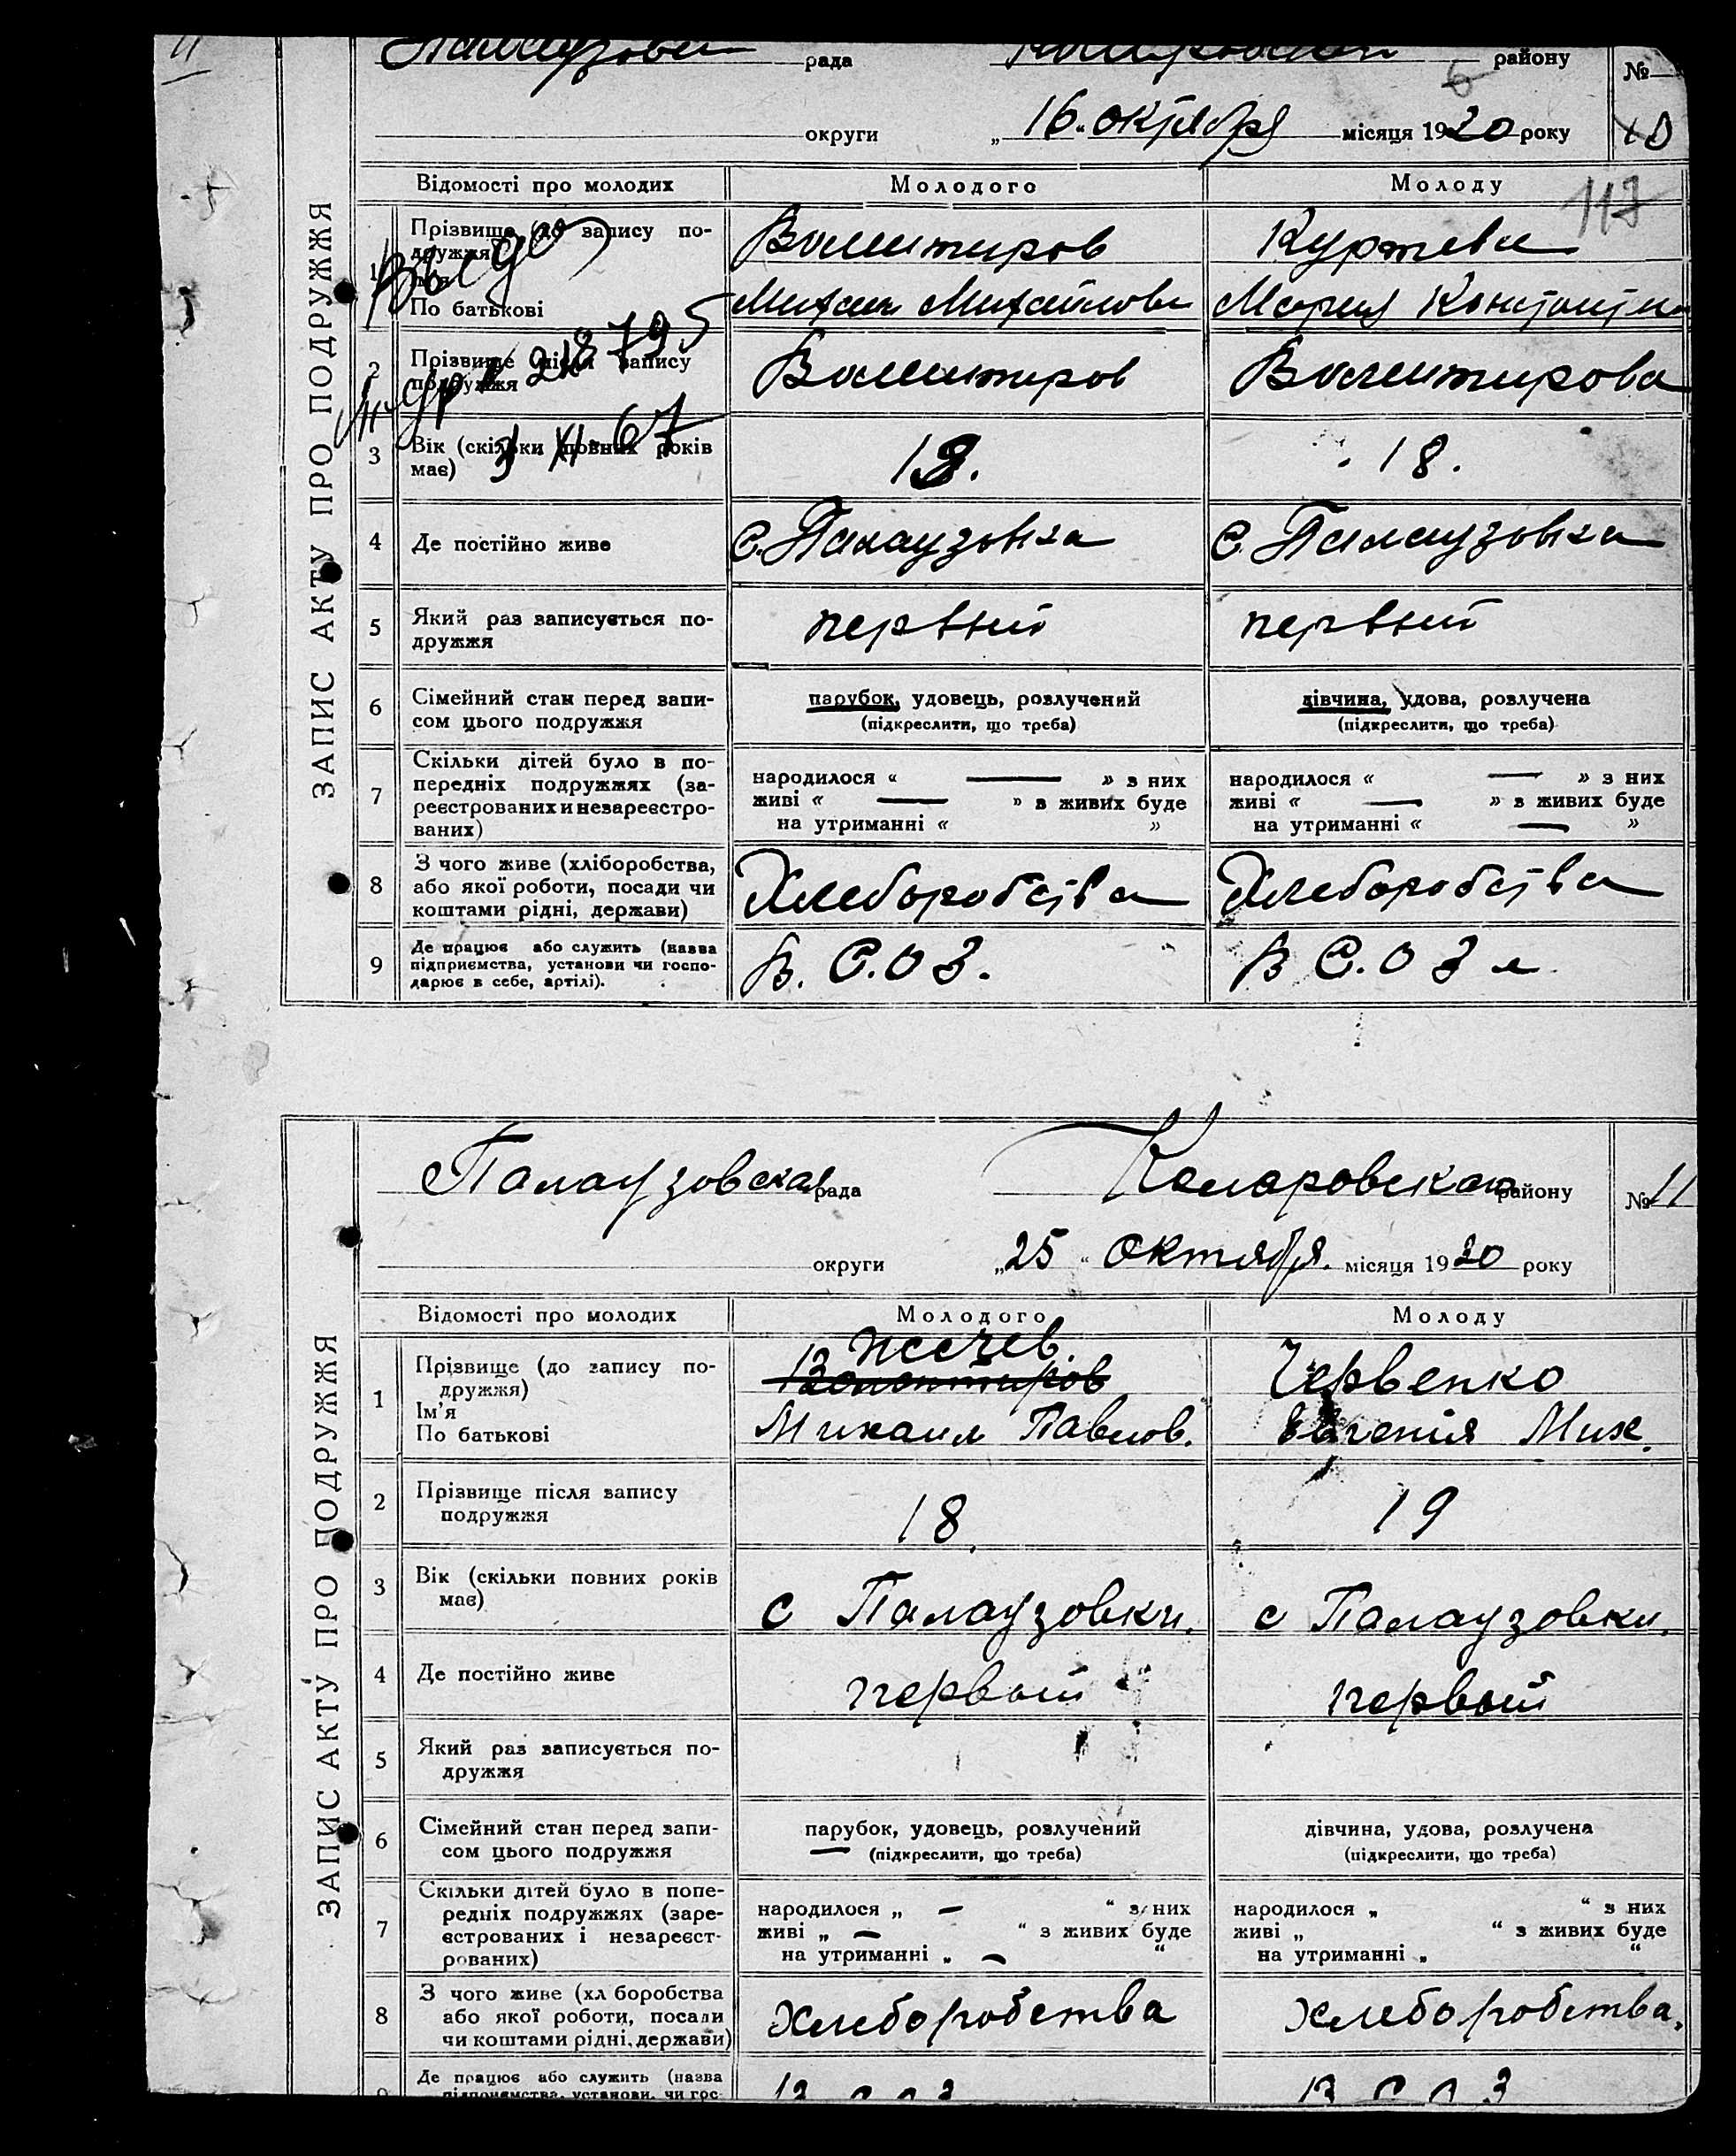 11
рада району №
округи „16“ октября місяця 1930 року 10
117
ЗАПИС АКТУ ПРО ПОДРУЖЖЯ
Відомості про молодих Молодого Молоду
1 Прізвище (до запису по-
дружжя)
Ім'я
По батькові
Михаил Михайлов
Мария
2 Прізвище після запису
подружжя
21879.5
3 XI-67
3 Вік (скільки повних років
має)
18. 18.
4 Де постійно живе с. Палаузовка с. Палаузовка
5 Який раз записується по-
дружжя
первый первый
6 Сімейний стан перед запи-
сом цього подружжя
парубок, удовець, розлучений
(підкреслити, що треба)
дівчина, удова, розлучена
(підкреслити, що треба)
7 Скільки дітей було в по-
передніх подружжях (за-
реєстрованих и незареєстро-
ваних)
народилося « — » з них
живі « — » з живих буде
на утриманні « »
народилося « — » з них
живі « — » з живих буде
на утриманні « — »
8 З чого живе (хліборобства,
або якої роботи, посади чи
коштами рідні, держави)
Хлеборобства Хлеборобства
9 Де працює або служить (назва
підприємства, установи чи госпо-
дарює в себе, артілі).
В. С.О З. В С.О З
Палаузовская рада району № 11
округи „25“ октября. місяця 1930 року
ЗАПИС АКТУ ПРО ПОДРУЖЖЯ
Відомості про молодих Молодого Молоду
1 Прізвище (до запису по-
дружжя)
Ім'я
По батькові
Жечев.
Михаил Павлов.
Червенко
Евгения Мих.
2 Прізвище після запису
подружжя
18. 19
3 Вік (скільки повних років
має)
с Палаузовки. с Палаузовки.
4 Де постійно живе первый первый
5 Який раз записується по-
дружжя
6 Сімейний стан перед запи-
сом цього подружжя
парубок, удовець, розлучений
(підкреслити, що треба)
дівчина, удова, розлучена
(підкреслити, що треба)
7 Скільки дітей було в попе-
редніх подружжях (заре-
єстрованих і незареєст-
рованих)
народилося „ — “ з них
живі „ — “ з живих буде
на утриманні „ — “
народилося „ “ з них
живі „ “ з живих буде
на утриманні „ “
8 З чого живе (хл боробства
або якої роботи, посади
чи коштами рідні, держави)
хлеборобства хлеборобства.
9 Де працює або служить (назва
підприємства, установи, чи гос-